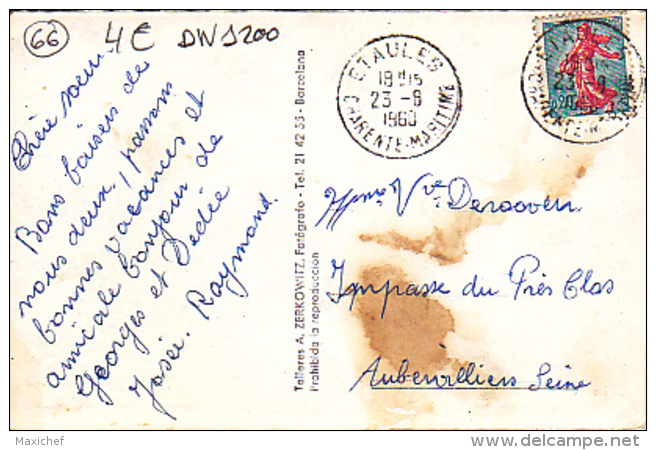 66 4€ DW1200
Chère soeur.
Bons baisers de
nous deux, passons
bonnes vacances et
amicale bonjour de
Georges et Dédée
Josée. Raymond.
Talleres A. ZERKOWITZ, Fotógrafo - Tel. 21 42 55 - Barcelona
Prohibida la reproduccion
ETAULES
18H15
23 -8
1960
CHARENTE-MARITIME
Mme Vve Derooven
Impasse du Près Clos
Aubervilliers Seine
Maxichef
www.delcampe.net